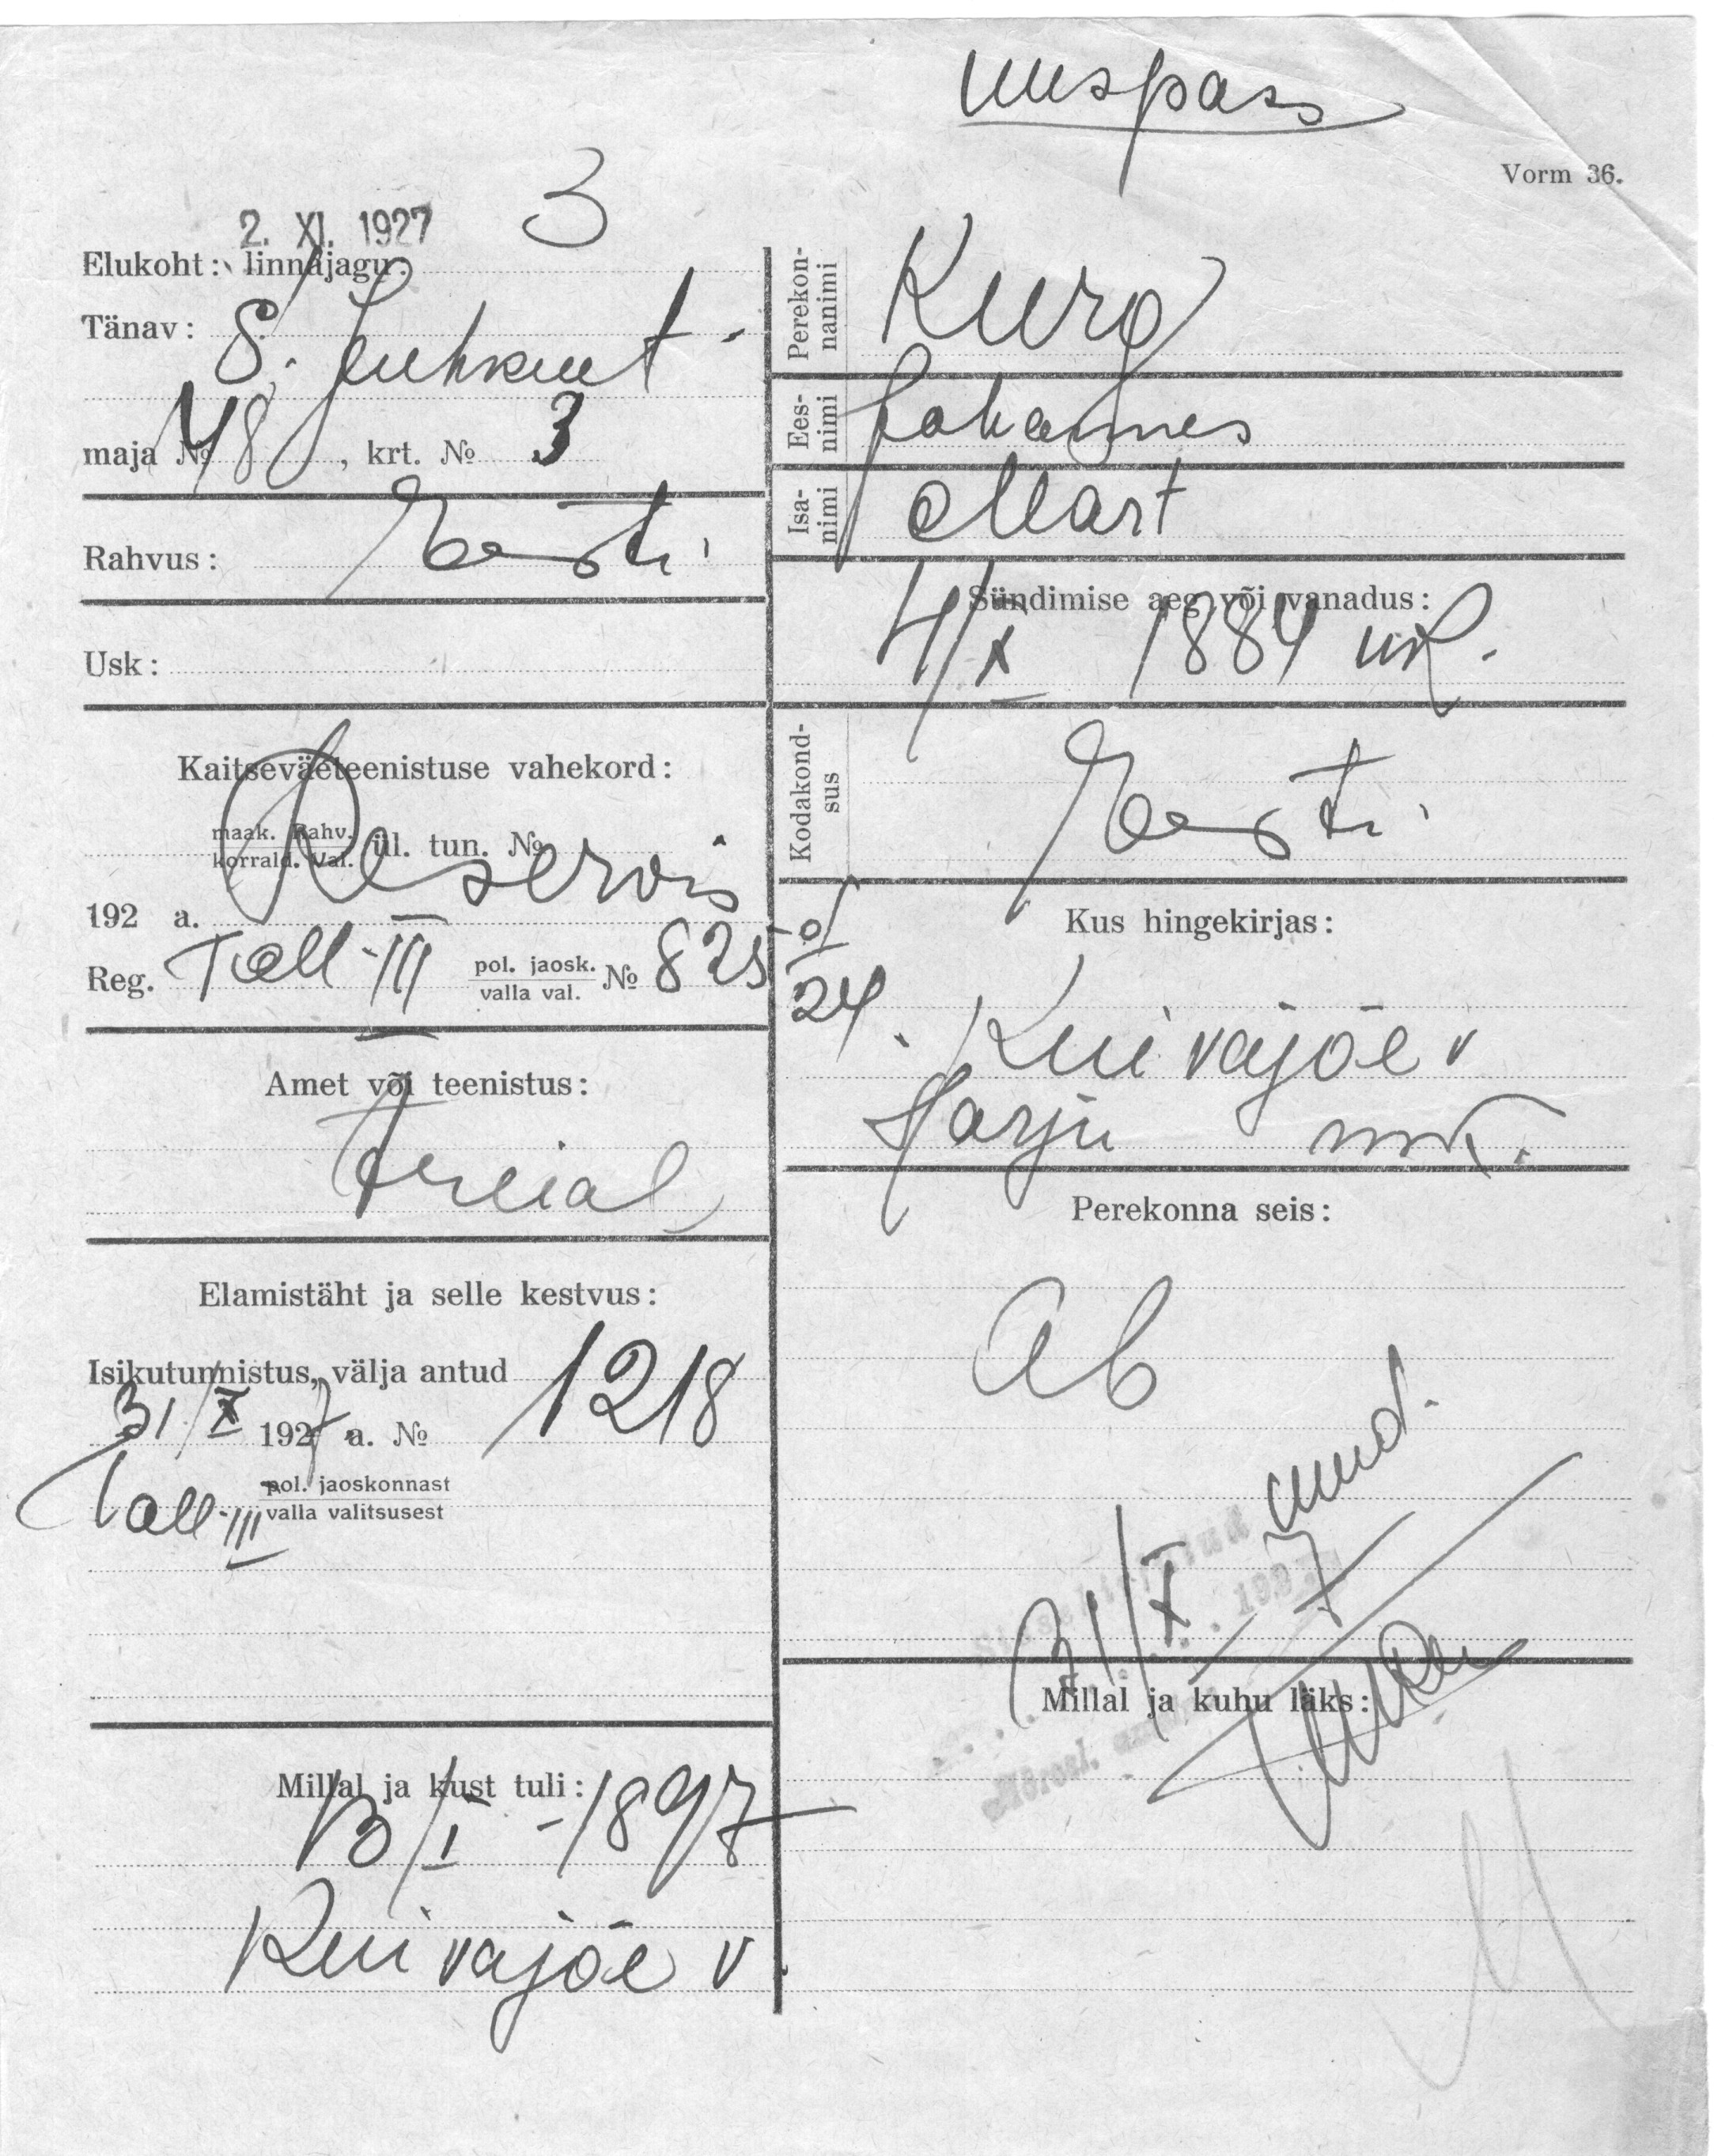 uuspass
Vorm 36.
2. XI. 1927
3
Elukoht: linnajagu:
Tänav: S. Juhkent
maja № 48, krt. № 3
Rahvus: Eesti
Usk:
Kaitseväeteenistuse vahekord:
maak. Rahv.
korrald. Val. ül. tun. №
Reservis
192 a.
Reg. Tall-III pol. jaosk. № 825
valla val.
24.
Amet või teenistus:
Treial
Elamistäht ja selle kestvus:
Isikutunnistus, välja antud
31/X 1927 a. № 1218
Tall-III pol. jaoskonnast
valla valitsusest
Millal ja kust tuli:
13/I - 1897
Kuivajõe v.
Perekon-
nanimi
Kurg
Ees-
nimi
Johannes
Isa-
nimi
Mart
Sündimise aeg või vanadus:
4/X 1884 uk.
Kodakond-
sus
Eesti
Kus hingekirjas:
Kuivajõe v
Harju mk.
Perekonna seis:
Ab
31/X 7
Millal ja kuhu läks: